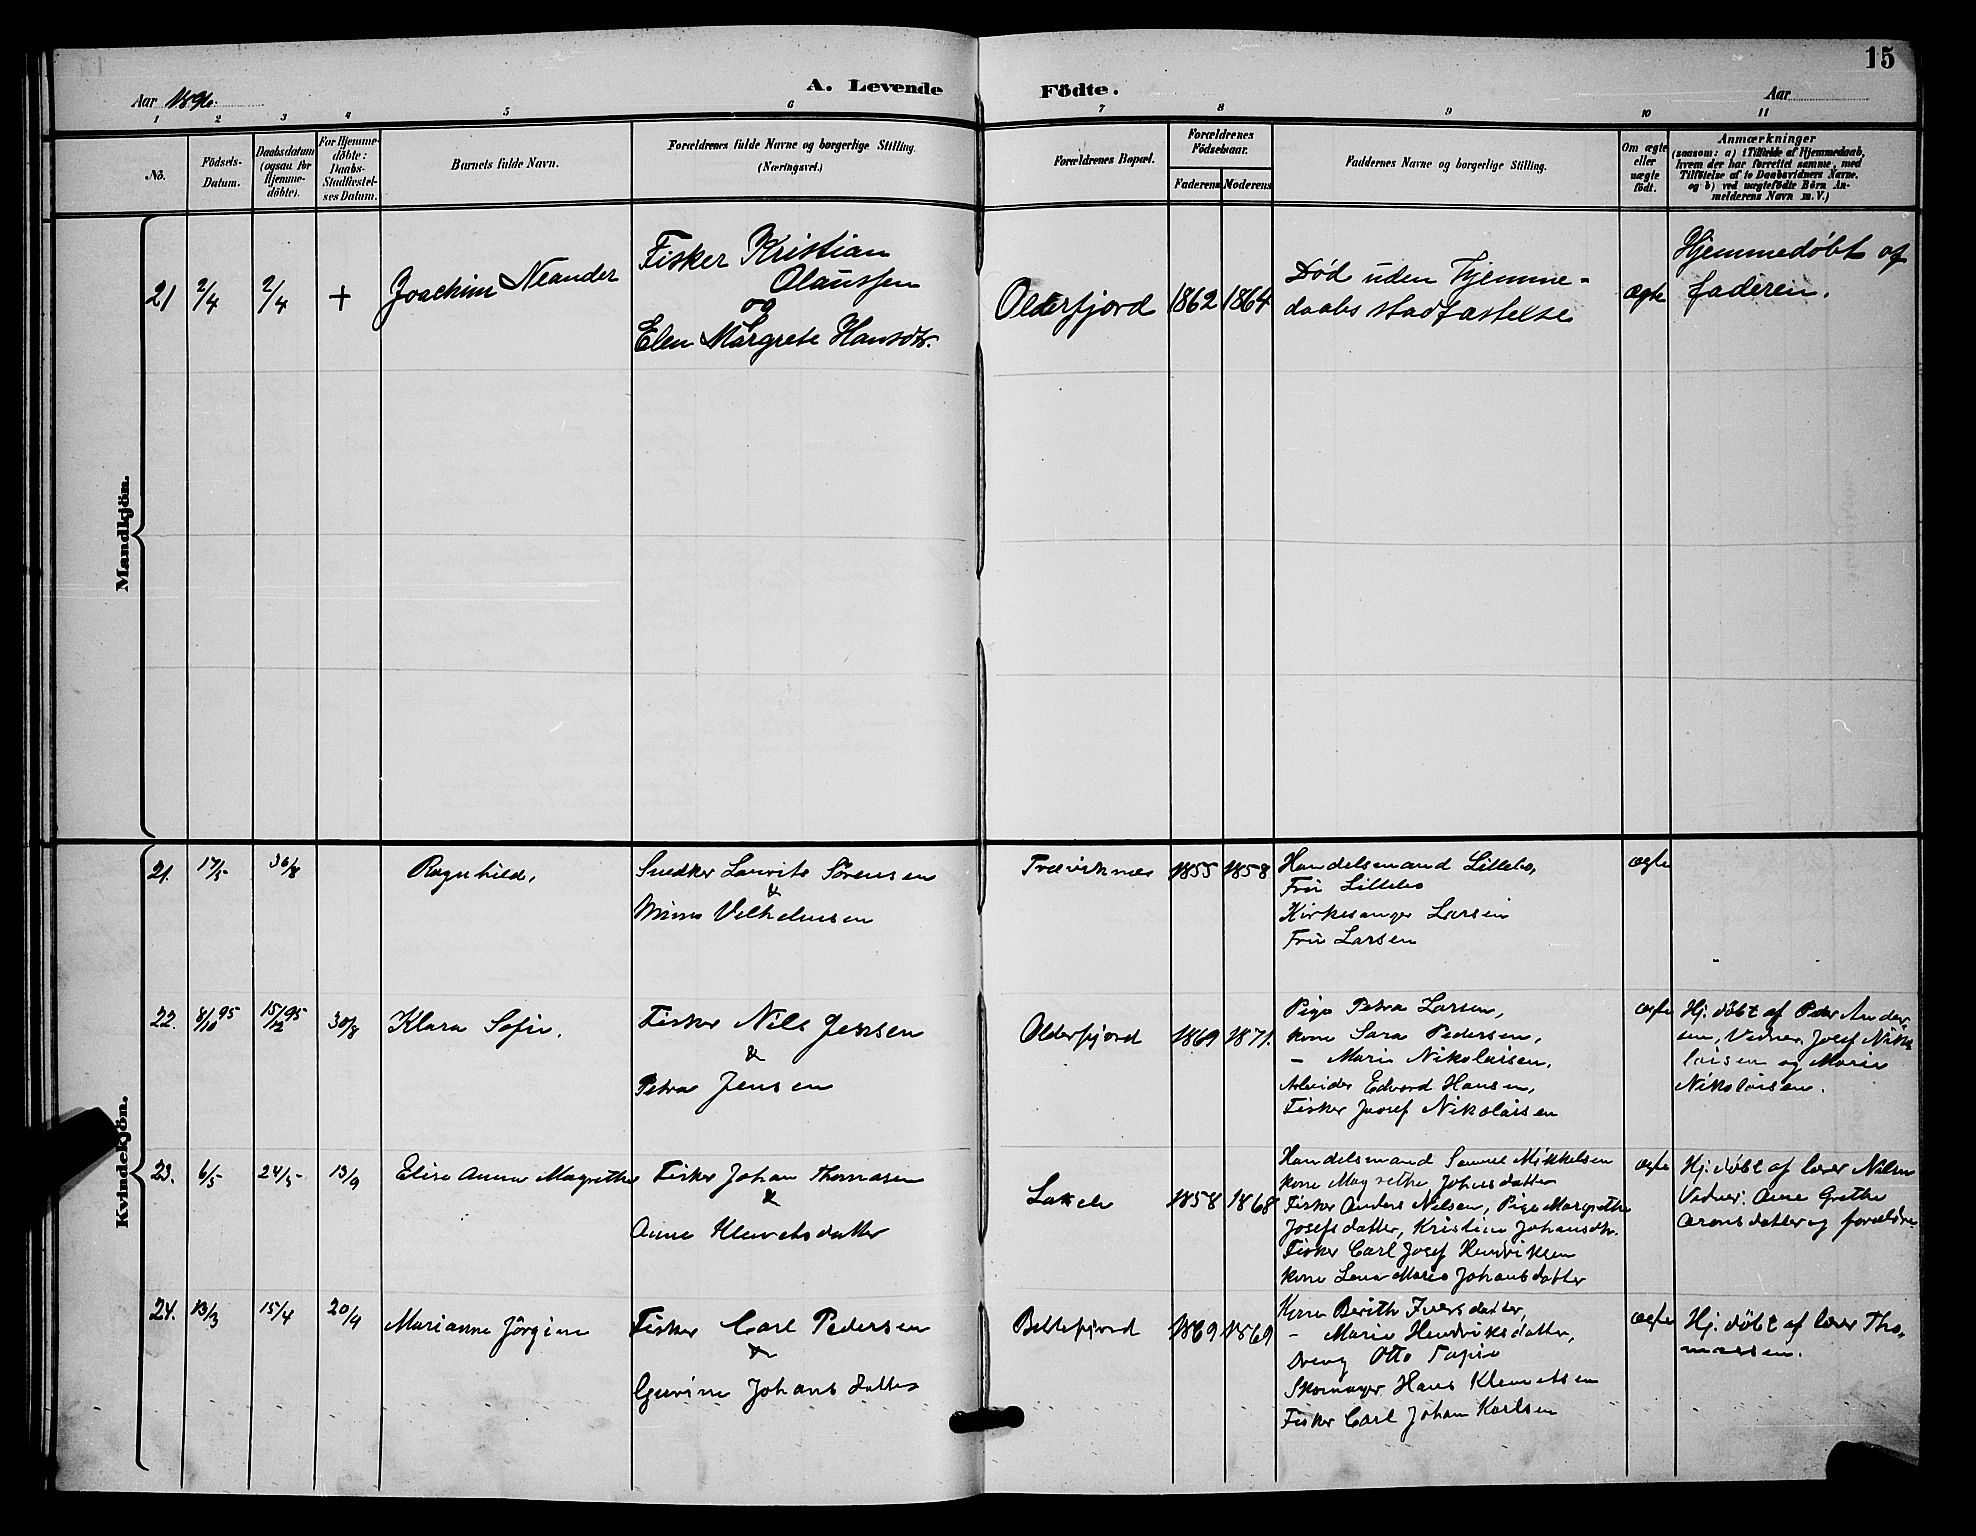 15
A. Levende Födte.
Aar 1896.
Aar
1 2 3 4 5 6 7 8 9 10 11
No.
Födsels-Datum.
Daabsdatum (ogsaa for Hjemme-döbte).
For Hjemme-döbte: Daabs-Stadfæstel-ses Datum.
Barnets fulde Navn.
Forældrenes fulde Navne og borgerlige Stilling. (Næringsvei.)
Forældrenes Bopæl.
Forældrenes Födselsaar.
Faderens Moderens
Faddernes Navne og borgerlige Stilling.
Om ægte eller uægte födt.
Anmærkninger
(saasom: a) i Tilfælde af Hjemmedaab,
hvem der har forrettet samme, med
Tilföielse af to Daabsvidners Navne.
og b) ved uægtefödte Börn An-
melderens Navn m. V.)
Mandkjön.
21 2/4 2/4 + Joachim Neander
Fisker Kristian
Olaussen
og
Elen Margrete Hansdtr.
Olderfjord 1862 1864
Død uden Hjemme-
daabs stadfæstelse
ægte
Hjemmedøbt af
faderen.
Kvindekjön.
21. 17/5 30/8 Ragnhild.
Snedker Lauvits Sörensen
&
Vilhelmsen
1855 1858
Handelsmand Lillebo,
Fru Lillebo
Kirkesanger Larsen
Fru Larsen
ægte
22. 8/10 95 15/12 95 30/8 Klara Sofie.
Fisker Nils Jensen
&
Petra Jensen
Olderfjord 1869 1871.
Pige Petra Larsen,
kone Sara Pedersen,
- Marie Nikolaisen,
Arbeider Edvard Hansen,
Fisker Josef Nikolaisen
ægte
Hj. döbt af Peder Ander-
sen, Vidner, Josef Niko
laisen og Marie
Nikolaisen.
23. 6/5 24/5 13/9 Elise Anna Magrethe
Fisker Johan Thomasen
&
Anne Klemetsdatter
Lakele 1858 1868
Handelsmand Samuel Mikkelsen
kone Magrethe Johnsdatter
Fisker Anders Nilsen, Pige Margrethe
Josefsdatter, Kristine Johansdtr.
Fisker Carl Josef Hendriksen
kone Lena Maria Johansdatter
ægte
Hj. döbt af lærer Nilsen
Vidner: Anne Grethe
Aronsdatter og forældre
24. 13/3 15/4 20/9 Marianne Jörgine
Fisker Carl Pedersen
&
Johansdatter
Billefjord 1869 1869
Kone Berith Iversdatter,
- Marie Hendriksdatter,
Dreng Otto
Skomager Hans Klemetsen
Fisker Carl Johan Karlsen
ægte
Hj. döbt af lærer Tho-
massen.